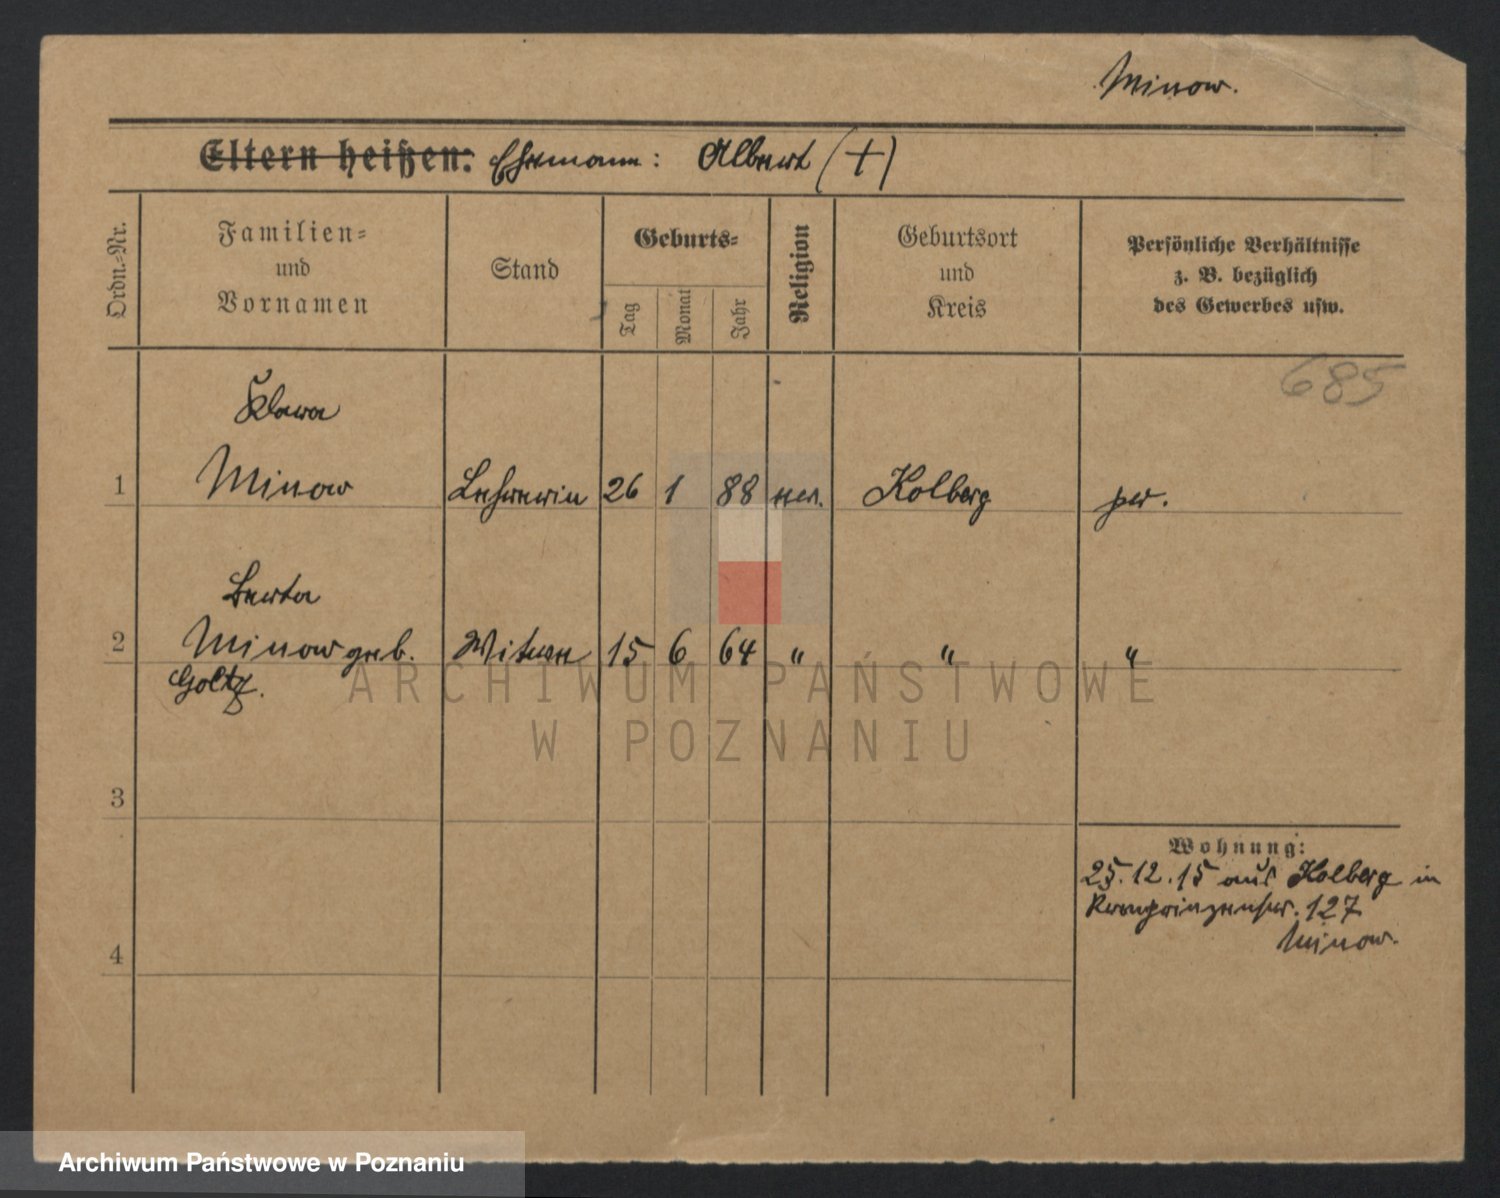 Minow.
Eltern heißen: Ehemann: Albert (+)
Ordn.-Nr.
Familien-
und
Vornamen
Stand
Geburts-
Tag
Monat
Jahr
Religion
Geburtsort
und
Kreis
Persönliche Verhältnisse
z. B. bezüglich
des Gewerbes usw.
685
Klara
1 Minow Lehrerin 26 1 88 Kolberg pr.
Berta
2 Minow geb. Witwe 15 6 64 " " "
Goltz.
ARCHIWUM PAŃSTWOWE
W POZNANIU
3
Wohnung:
25.12.15 aus Kolberg in
Kronprinzenstr. 127
Minow.
4
Archiwum Państwowe w Poznaniu